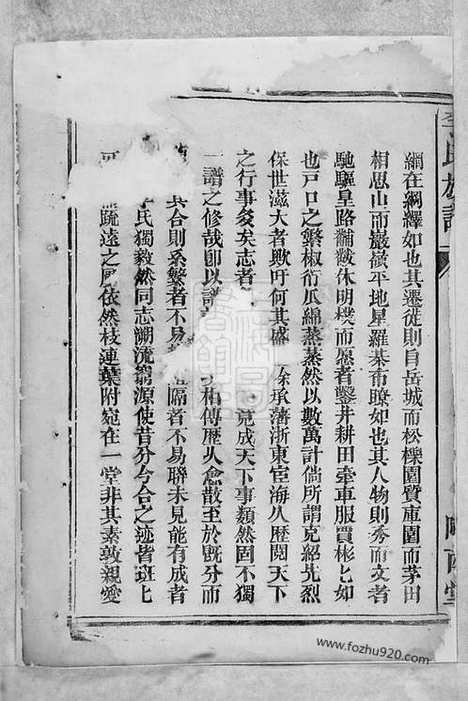 李氏族譜
隴西堂
綱在綱繹如也其遷徙則自岳城而松櫟園質庫圍而茅田
相思山而巖嶽平地星羅棊布瞭如也其人物則秀而文者
馳驅皇路黼黻休明樸而愿者鑿井耕田牽車服賈彬匕如
也戸口之繁椒衍瓜綿蒸蒸然以數萬計倘所謂克紹先烈
保世滋大者歟吁何其盛 餘承藩浙東宦海久歷閱天下
之行事夋矣志者 竟成天下事類然固不獨
一譜之修哉卽以譜 相傳歷久愈散至於旣分而
其合則系繁者不易 隔者不易聯未見能有成者
氏獨毅然同志溯流窮源使昔分今合之迹皆班匕
可 疏遠之 依然枝連葉附宛在一堂非其素敦親愛
www.fozhu920.com